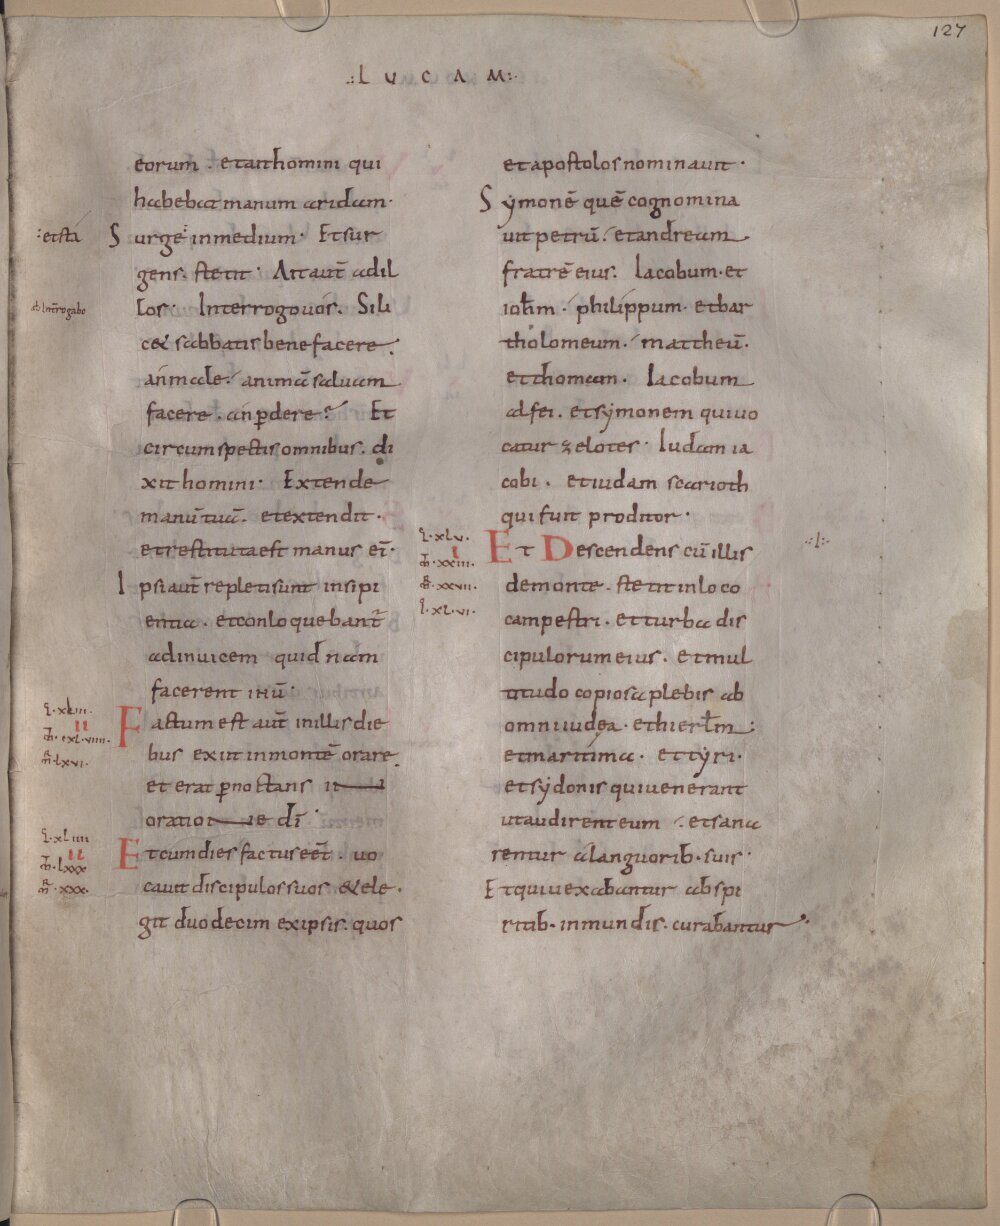 127
.:LUCAM:.
eorum . et ait homini qui
habebat manum aridam·
:et sta
Surge in medium· Et sur
gens. stetit· Ait aut̄ ad il
los· Interrogo uos. Si li
cet sabbatis bene facere.
an male. animā saluam
facere. an ꝑdere? Et
circumspectis omnibus. di
xit homini· Extende
manū tuā. et extendit·
et restituta est manus ei'·
Ipsi aut̄ repleti sunt insipi
entia. et conloquebant᷑
ad inuicem quid nam
facerent ihū·
l·xliii·
ii
lxvi·
Factum est aut̄ in illis die
bus exiit in montē orare.
et erat ꝑnoctans i—n
oratio—ne dī·
l·xliiii
ii
lxxx
xxx·
Et cum dies factus eēt. uo
cauit discipulos suos & ele·
git duodecim ex ipsis. quos
et apostolos nominauit·
Sẏmonē quē cognomina
uit petrū. et andream
fratrē eius. Iacobum· et
ioh̄m· philippum· et bar
tholomeum. mattheū·
et thomam. Iacobum
alfei. et sẏmonem qui uo
catur zelotes· Iudam ia
cobi. et iudam scarioth
qui fuit proditor·
l·xlv·
i
xxiii·
xxvii·
l·xl·vi·
Et Descendens cū illis
·:l:·
de monte. stetit in loco
campestri. et turba dis
cipulorum eius. et mul
titudo copiosa plebis ab
omni iudea. et hierl̄m:
et maritima. et tẏri·
et sẏdonis qui uenerant
ut audirent eum. et sana
rentur a languorib· suis·
Et qui uexabantur ab spi
ritib· inmundis. curabantur·